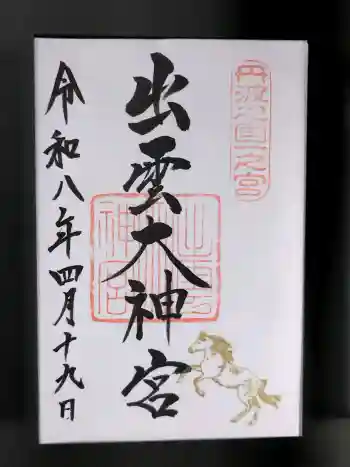 丹波國一之宮
出雲大神宮
出雲大神宮
令和八年四月十九日